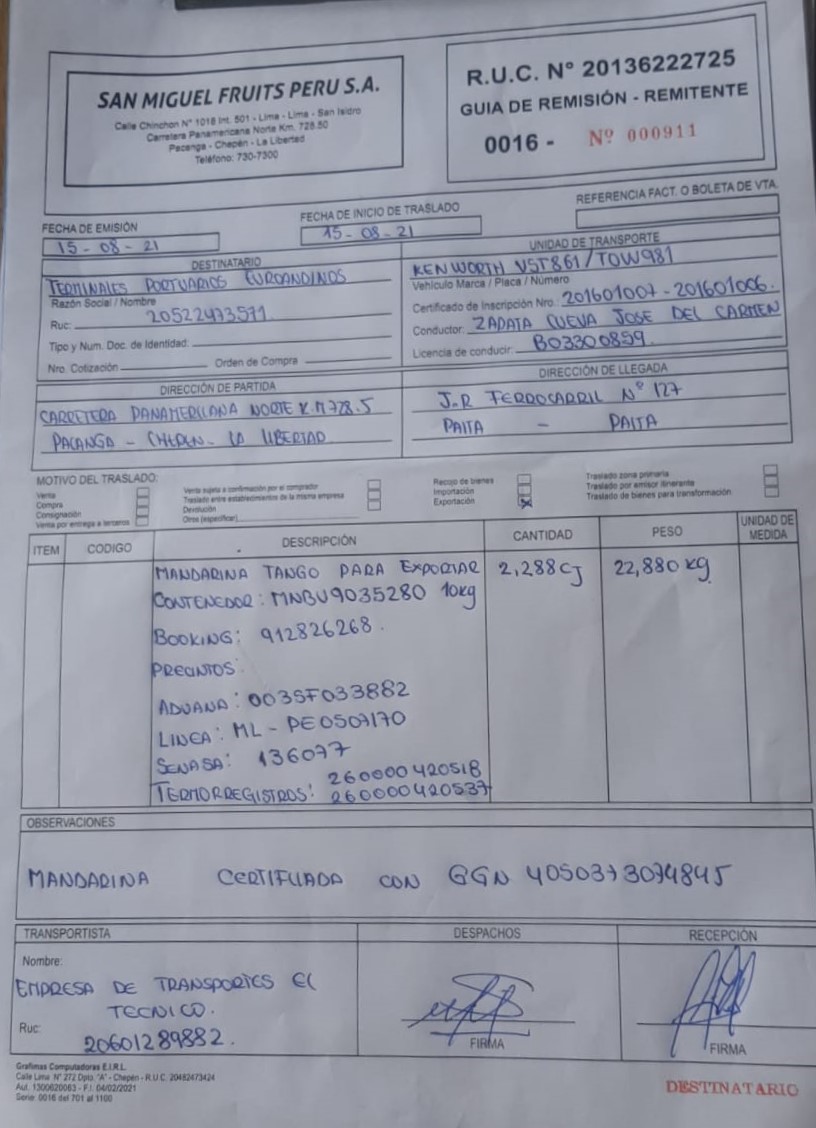 SAN MIGUEL FRUITS PERU S.A.
Calle Chinchon N° 1018 Int. 501 - Lima - Lima - San Isidro
Carretera Panamericana Norte Km. 728.50
Pacanga - Chepén - La Libertad
Teléfono: 730-7300
R.U.C. N° 20136222725
GUIA DE REMISIÓN - REMITENTE
0016 - Nº 000911
FECHA DE EMISIÓN
15-08-21
FECHA DE INICIO DE TRASLADO
15-08-21
REFERENCIA FACT. O BOLETA DE VTA.
DESTINATARIO
TERMINALES PORTUARIOS EUROANDINOS
Razón Social / Nombre
Ruc: 20522473571
Tipo y Num. Doc. de Identidad:
Nro. Cotización Orden de Compra
UNIDAD DE TRANSPORTE
KENWORTH VST861/TOW981
Vehículo Marca / Placa / Número
Certificado de Inscripción Nro.: 201601007-201601006.
Conductor: ZAPATA CUEVA JOSE DEL CARMEN
Licencia de conducir: B03300859
DIRECCIÓN DE PARTIDA
CARRETERA PANAMERICANA NORTE K.M 728.5
PACANGA - CHEPEN - LA LIBERTAD
DIRECCIÓN DE LLEGADA
J.R FERROCARRIL N° 127
PAITA - PAITA
MOTIVO DEL TRASLADO:
Venta
Compra
Consignación
Venta por entrega a terceros
Venta sujeta a confirmación por el comprador
Traslado entre establecimientos de la misma empresa
Devolución
Otros (especificar)
Recojo de bienes
Importación
Exportación X
Traslado zona primaria
Traslado por emisor itinerante
Traslado de bienes para transformación
ITEM CODIGO DESCRIPCIÓN CANTIDAD PESO UNIDAD DE MEDIDA
MANDARINA TANGO PARA EXPORTAR 2,288 CJ 22,880 kg
CONTENEDOR: MNBU9035280 10kg
BOOKING: 912826268.
PRECINTOS:
ADUANA: 0035F033882
LINEA: ML-PE0507170
SENASA: 136077
TERMORREGISTROS: 260000420518
260000420537
OBSERVACIONES
MANDARINA CERTIFICADA CON GGN 4050373074845
TRANSPORTISTA
Nombre:
EMPRESA DE TRANSPORTES EL
TECNICO.
Ruc: 20601289882.
DESPACHOS
FIRMA
RECEPCIÓN
FIRMA
Grafimas Computadoras E.I.R.L.
Calle Lima N° 272 Dpto. "A" - Chepén - R.U.C. 20482473424
Aut. 1300620063 - F.I. 04/02/2021
Serie: 0016 del 701 al 1100
DESTINATARIO